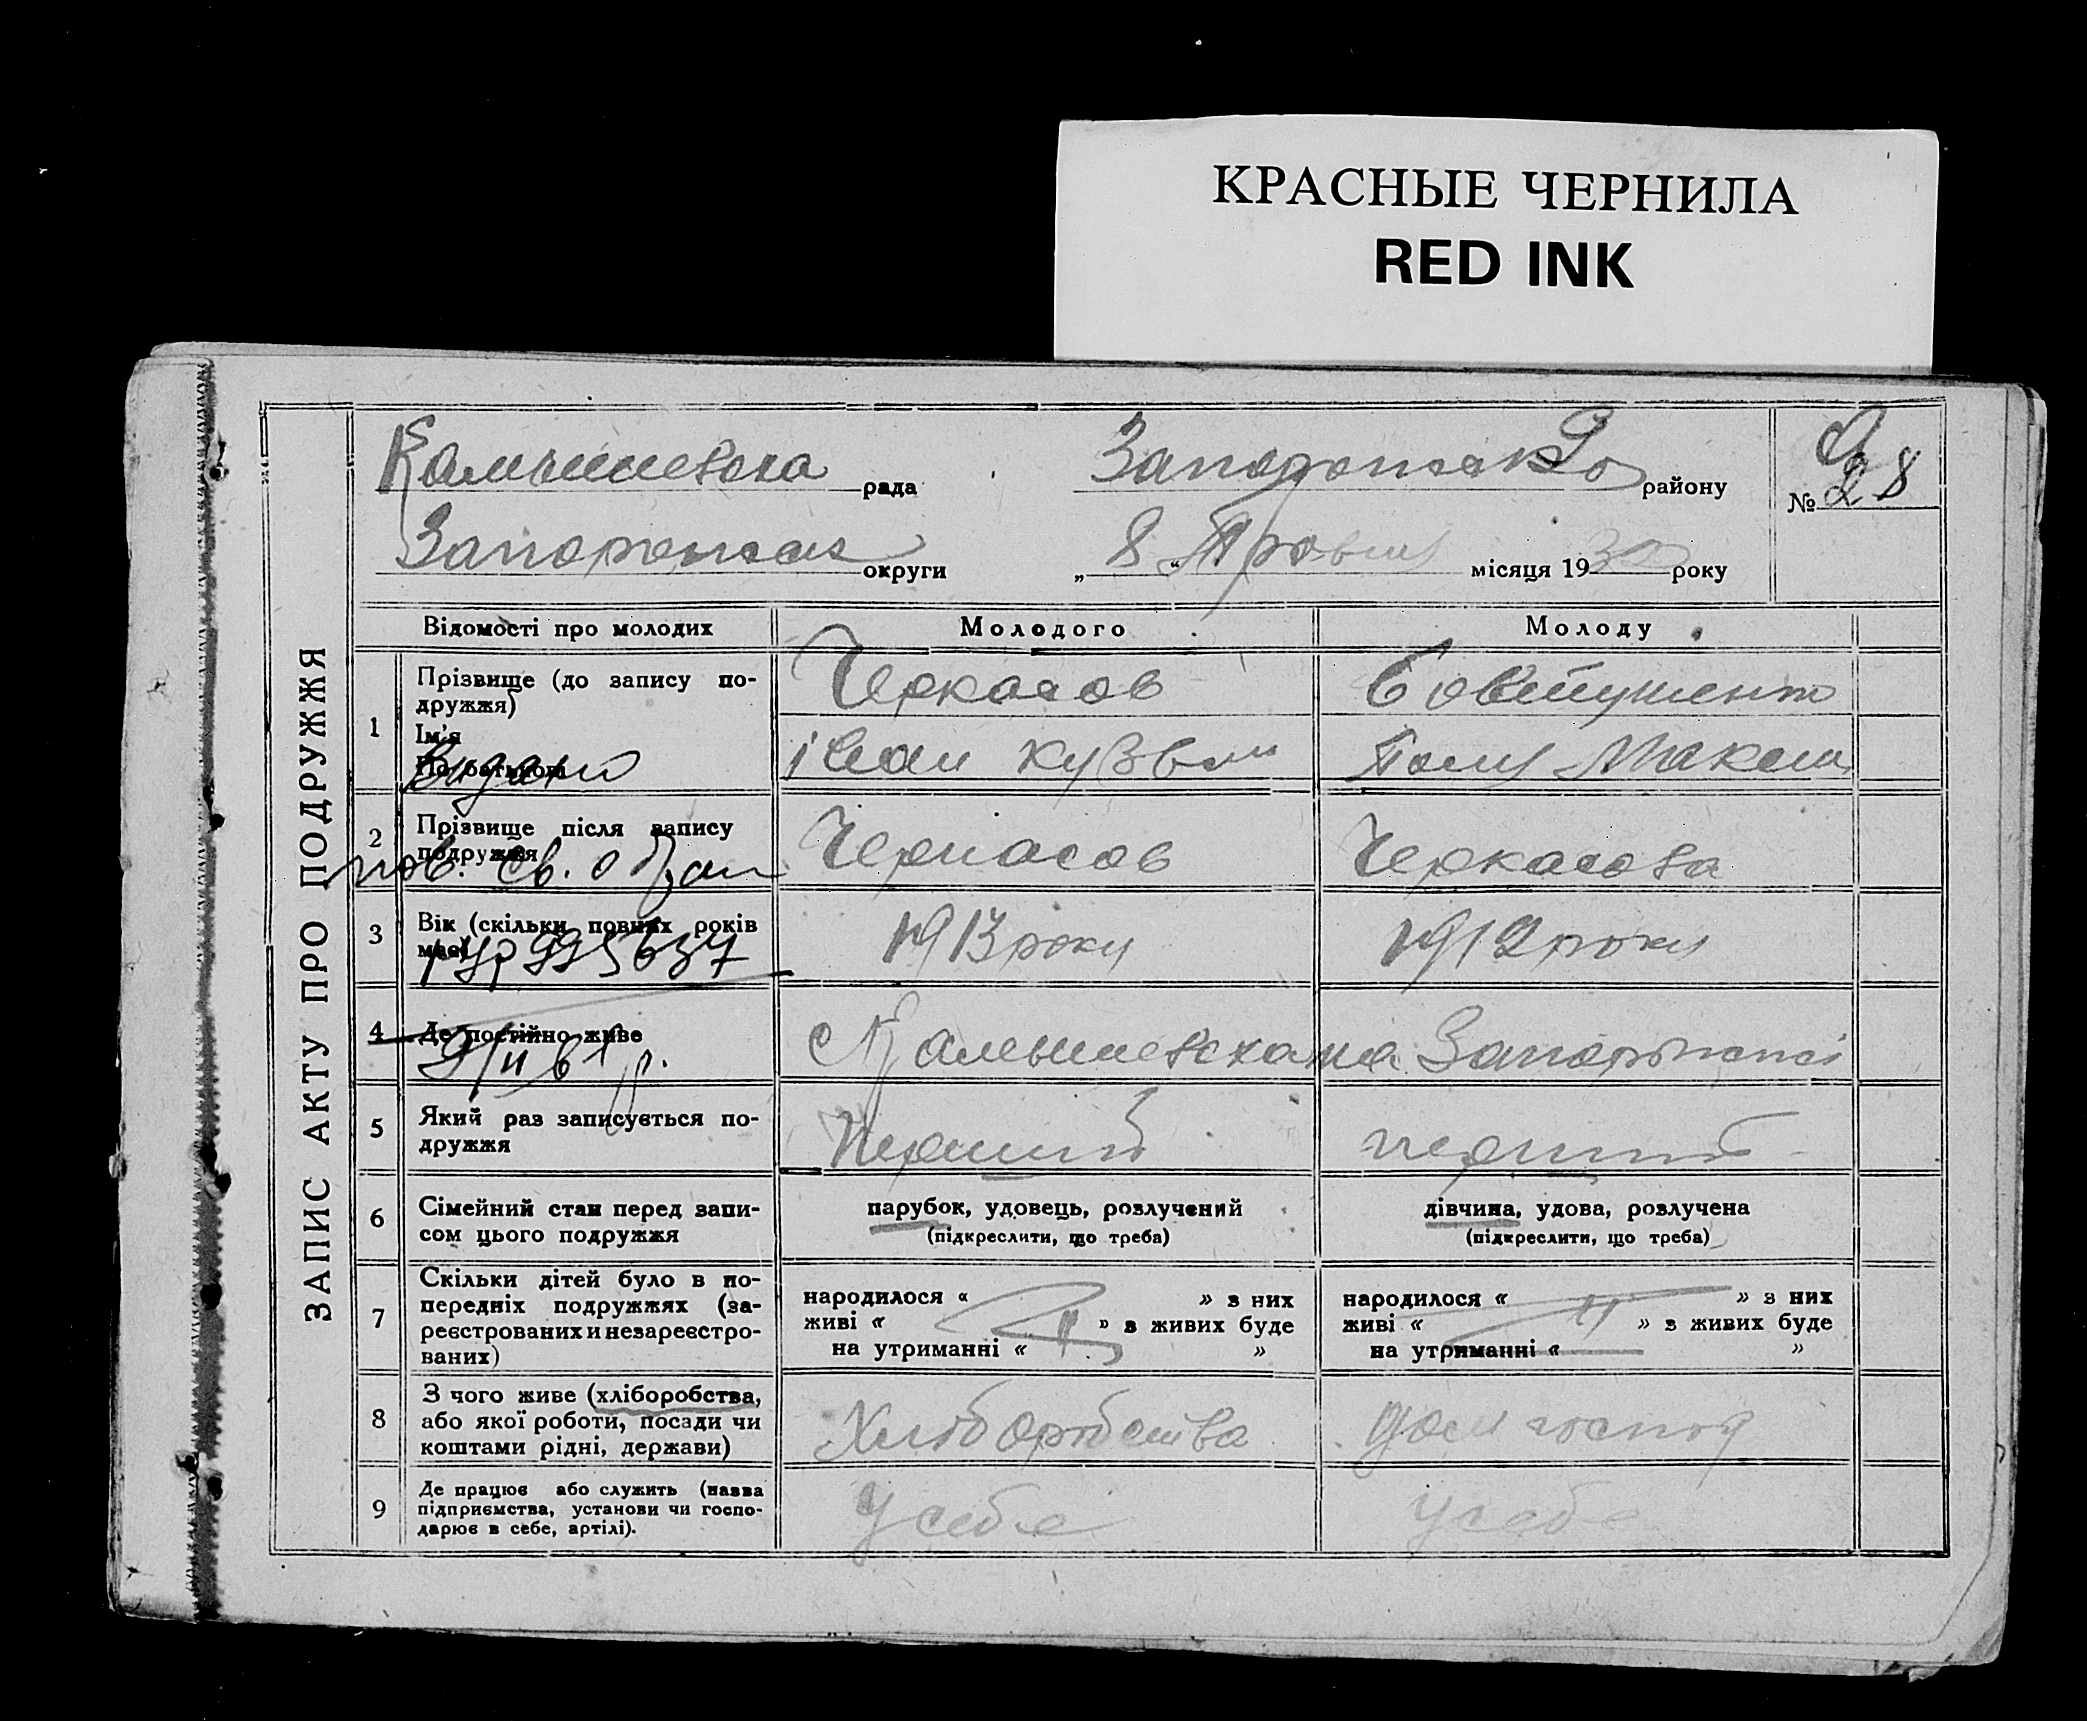 КРАСНЫЕ ЧЕРНИЛА
RED INK
ЗАПИС АКТУ ПРО ПОДРУЖЖЯ
рада
району
№ 28
округи
„ 8 “ Травня місяця 1930 року
Відомості про молодих Молодого Молоду
1 Прізвище (до запису по-
дружжя) Черкасов
Ім'я
По батькові Іван Кузьм
Видано
2 Прізвище після запису
подружжя Черкасов Черкасова
пов. св. о
3 Вік (скільки повних років
має) 1913 року 1912 року
995637
4 Де постійно живе
5 Який раз записується по-
дружжя Перший перший
6 Сімейний стан перед запи-
сом цього подружжя
парубок, удовець, розлучений
(підкреслити, що треба)
дівчина, удова, розлучена
(підкреслити, що треба)
7 Скільки дітей було в по-
передніх подружжях (за-
реєстрованих и незареєстро-
ваних)
народилося « » з них
живі « » з живих буде
на утриманні « »
народилося « » з них
живі « » з живих буде
на утриманні « »
8 З чого живе (хліборобства,
або якої роботи, посади чи
коштами рідні, держави)
Хліборобства
дом господ
9 Де працює або служить (назва
підприємства, установи чи госпо-
дарює в себе, артілі).
У себе
У себе